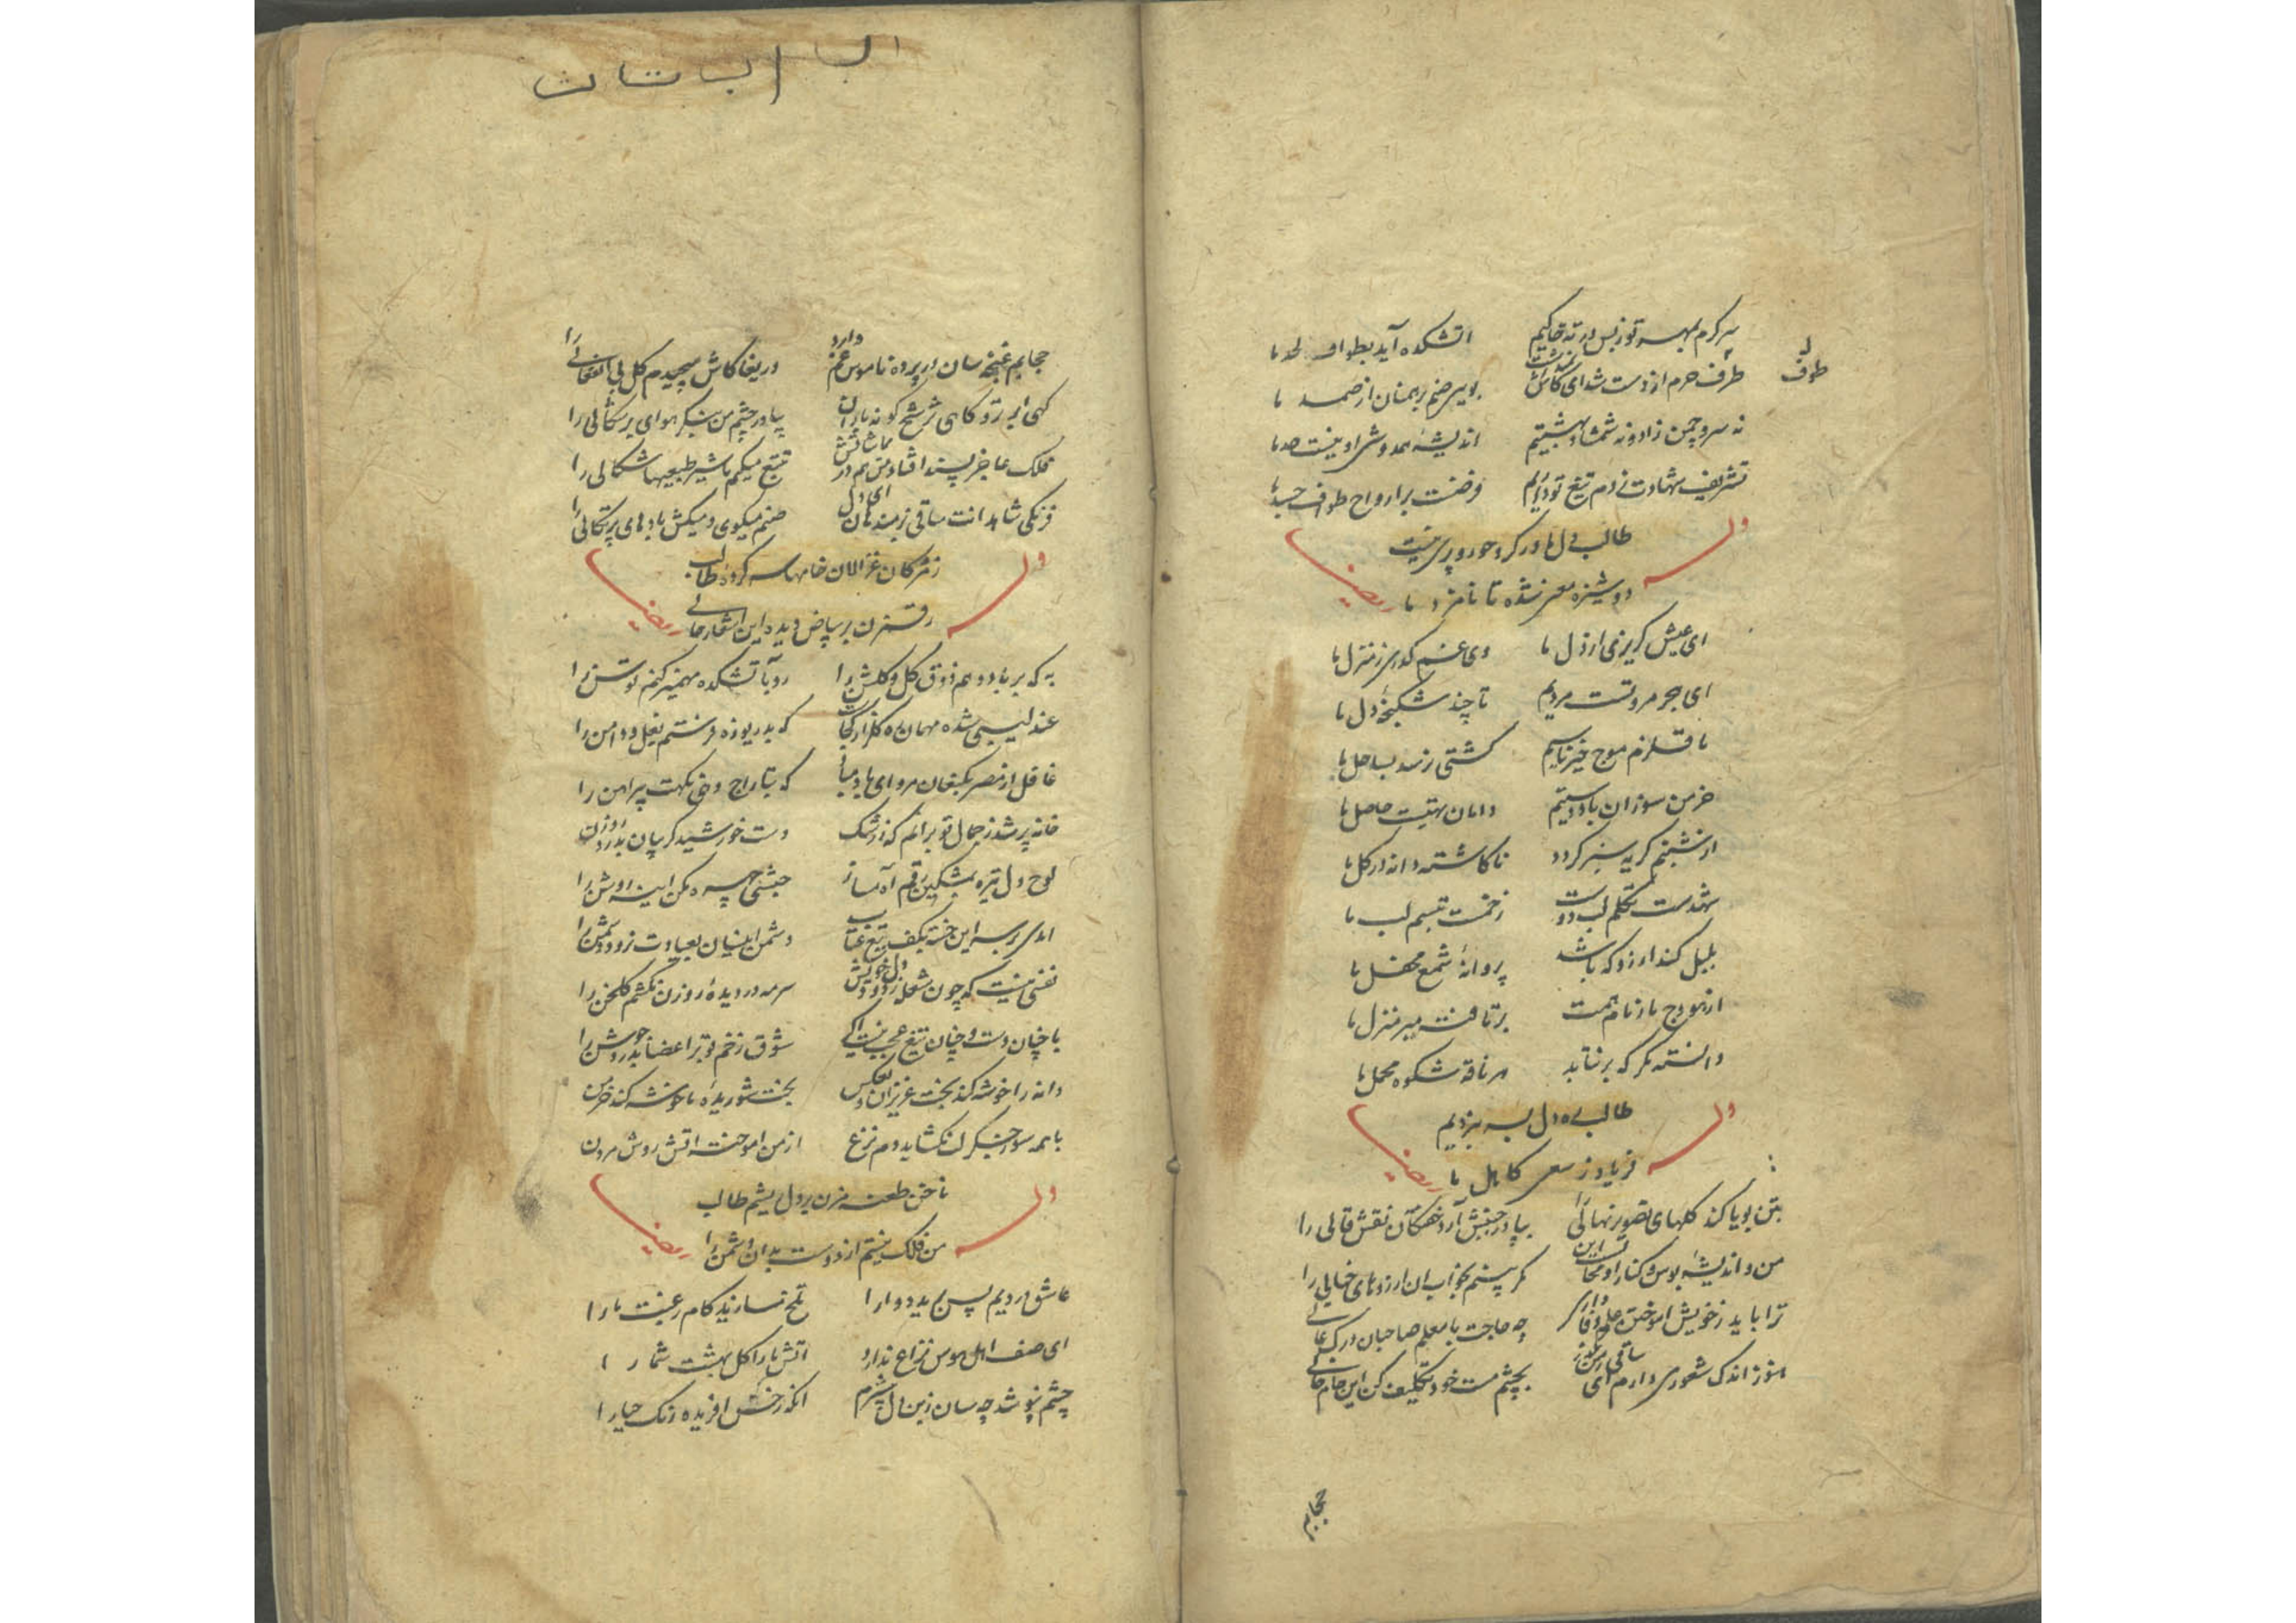 سرکرم بمهر تو ز بس در ته خاکیم اتشکده آید بطواف لحد ما
طرف حرم از دست شد ای کاش
طوف
نه سرو چمن زاد و نه شمشاد بهشتیم اندیشهٔ همدوشی او نیست حد ما
تشریف شهادت ز دم تیغ تو داریم فرضست بر ارواح طواف جسد ما
طالب دل ما در کرو حور و پری نیست
وله
دوشیزهٔ معنی شده تا نامزد ما
ایضا
ای عیش کریزی از دل ما وی غم کذری ز منزل ما
ای هجر مروتست مردیم تا چند شکنجهٔ دل ما
ما قلزم موج خیز یاسیم کشتی نرسد بساحل ما
خرمن سوزان باد دستیم دامان تهیست حاصل ما
از شبنم کریه سبز کردد ناکاشته دانه در کل ما
شهدست تکلم لب دوست زخمست تبسم لب ما
بلبل کند ارزو که باشد پروانهٔ شمع محفل ما
از هودج ناز نام تست
دانسته مکر که برنتابد هر ناقه شکوه محمل ما
طالب ره دل بسر نبردیم
وله
فریاد ز سعی کاهل ما
ایضا
بتن بویا کند کلهای تصویر نهالی را بپا در جنبش آرد خفتکان نقش قالی را
من و اندیشهٔ بوس و کنار او محالست این مکر بینم بخواب ان ارزوهای خیالی را
ترا باید ز خویش اموختن چه حاجت با معلم صاحبان درک عالی را
هنوز اندک شعوری دارم ای ساقی بچشم مست خود تکلیف کن این جام خالی را
حجابم
البا الب ت ا ث
حجابم غنچه سان در پرده ناموس غم دارد دریغا کاش می‌چیدم کل بی انفعالی را
کهی ابر تر و کاهی ترشح کونه باران بیا در چشم من بنکر هوای برشکالی را
فلک عاجز پسند افتاد من هم در تتبع میکنم با شیر طبعیها شکالی را
فرنکی شاهد انت ساقی بزمند هان ای دل صنم میکوی و میکش باده‌های پرتکالی را
ز مژکان غزالان خامها سر کرده طالب
وله
رقم زن بر بیاض دیده این اشعار حالی را
ایضا
به که بر باد دهم ذوق کل و کلشن را رو بآتشکده مهمیز کنم توسن را
عندلیبی شده مهمان که بدریوزه فرستم بغل و دامن را
غافل از مصر بکنعان مرو ای باد صبا که بتاراج دهی نکهت پیراهن را
خانه پر شد ز جمال تو برانم که ز رشک دست خورشید کریبان بدرد روزن را
لوح دل تیره بمشکین رقم آه مساز حبشی چهره مکن اینهٔ روشن را
امدی بر سر این خسته بکف تیغ عتاب دشمن اینسان بعیادت نرود دشمن را
نفسی نیست که چون شعله ز دود دل خویش سرمه در دیدهٔ روزن نکشم کلخن را
با چنان دست و چنان تیغ عجب نیست اکر شوق زخم تو بر اعضا بدرد جوشن را
دانه را خوشه کند بخت عزیزان بخت شوریدهٔ ما خوشه کند خرمن را
با همه سوز جکر لب نکشاید دم نزع از من اموخته اتش روش مردن را
ناخن طعنه مزن بر دل ریشم طالب
وله
من فلک نیستم از دوست بدان دشمن را
ایضا
عاشق دردیم پس برید دوا را تلخ نسازید کام رغبت ما را
ای صف اهل هوس نزاع ندارد اتش ما را کل بهشت شما را
چشم نپوشد چه سان انکه رخش افریده رنک حیا را